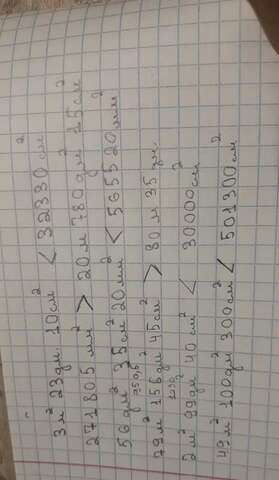 3м² 23дм² 10см² < 32330см²
271805 мм² > 20м² 780дм² 15см²
56дм² 35см² 20мм² < 565520мм²
79м² 156дм² 45см² > 80м² 35дм²
2м² 99дм² 40см² < 30000см²
49м² 100дм² 300см² < 501300см²